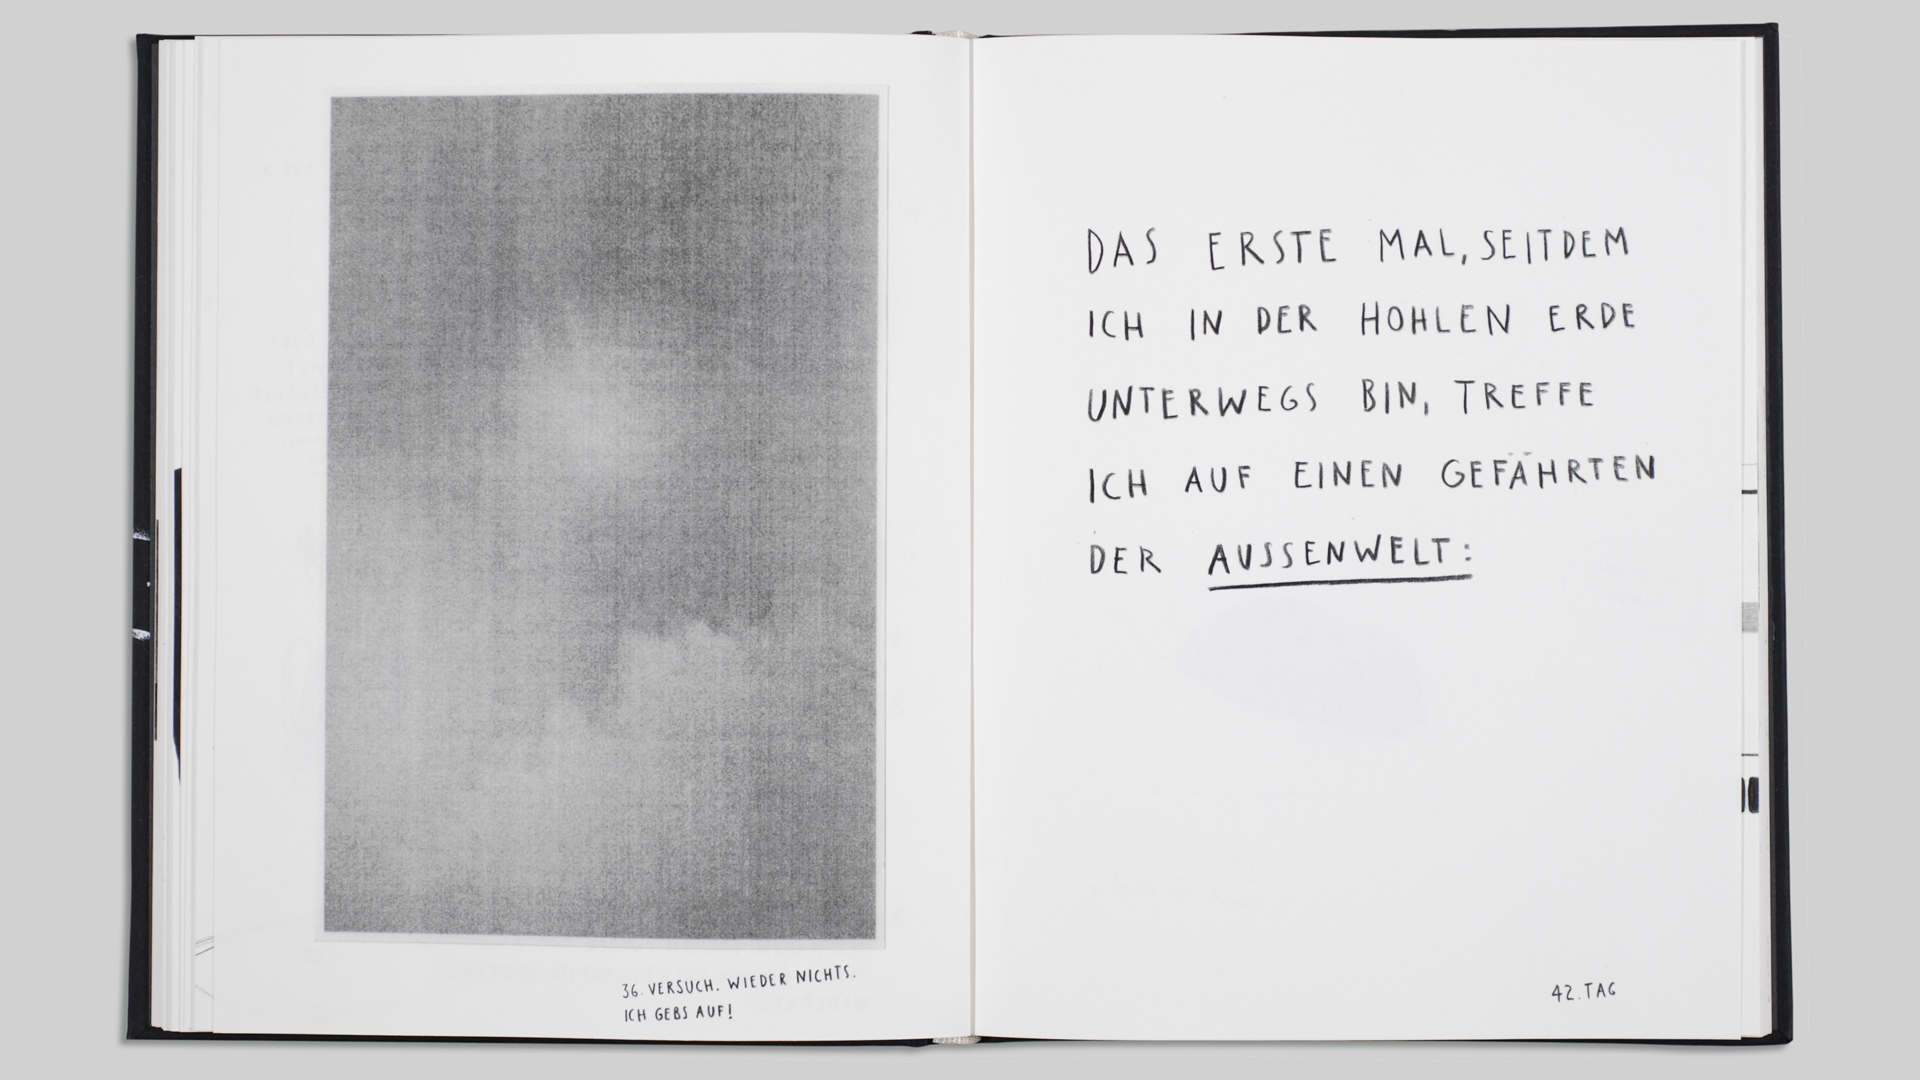 36. VERSUCH. WIEDER NICHTS.
ICH GEBS AUF!
DAS ERSTE MAL, SEITDEM
ICH IN DER HOHLEN ERDE
UNTERWEGS BIN, TREFFE
ICH AUF EINEN GEFÄHRTEN
DER AUSSENWELT:
42. TAG